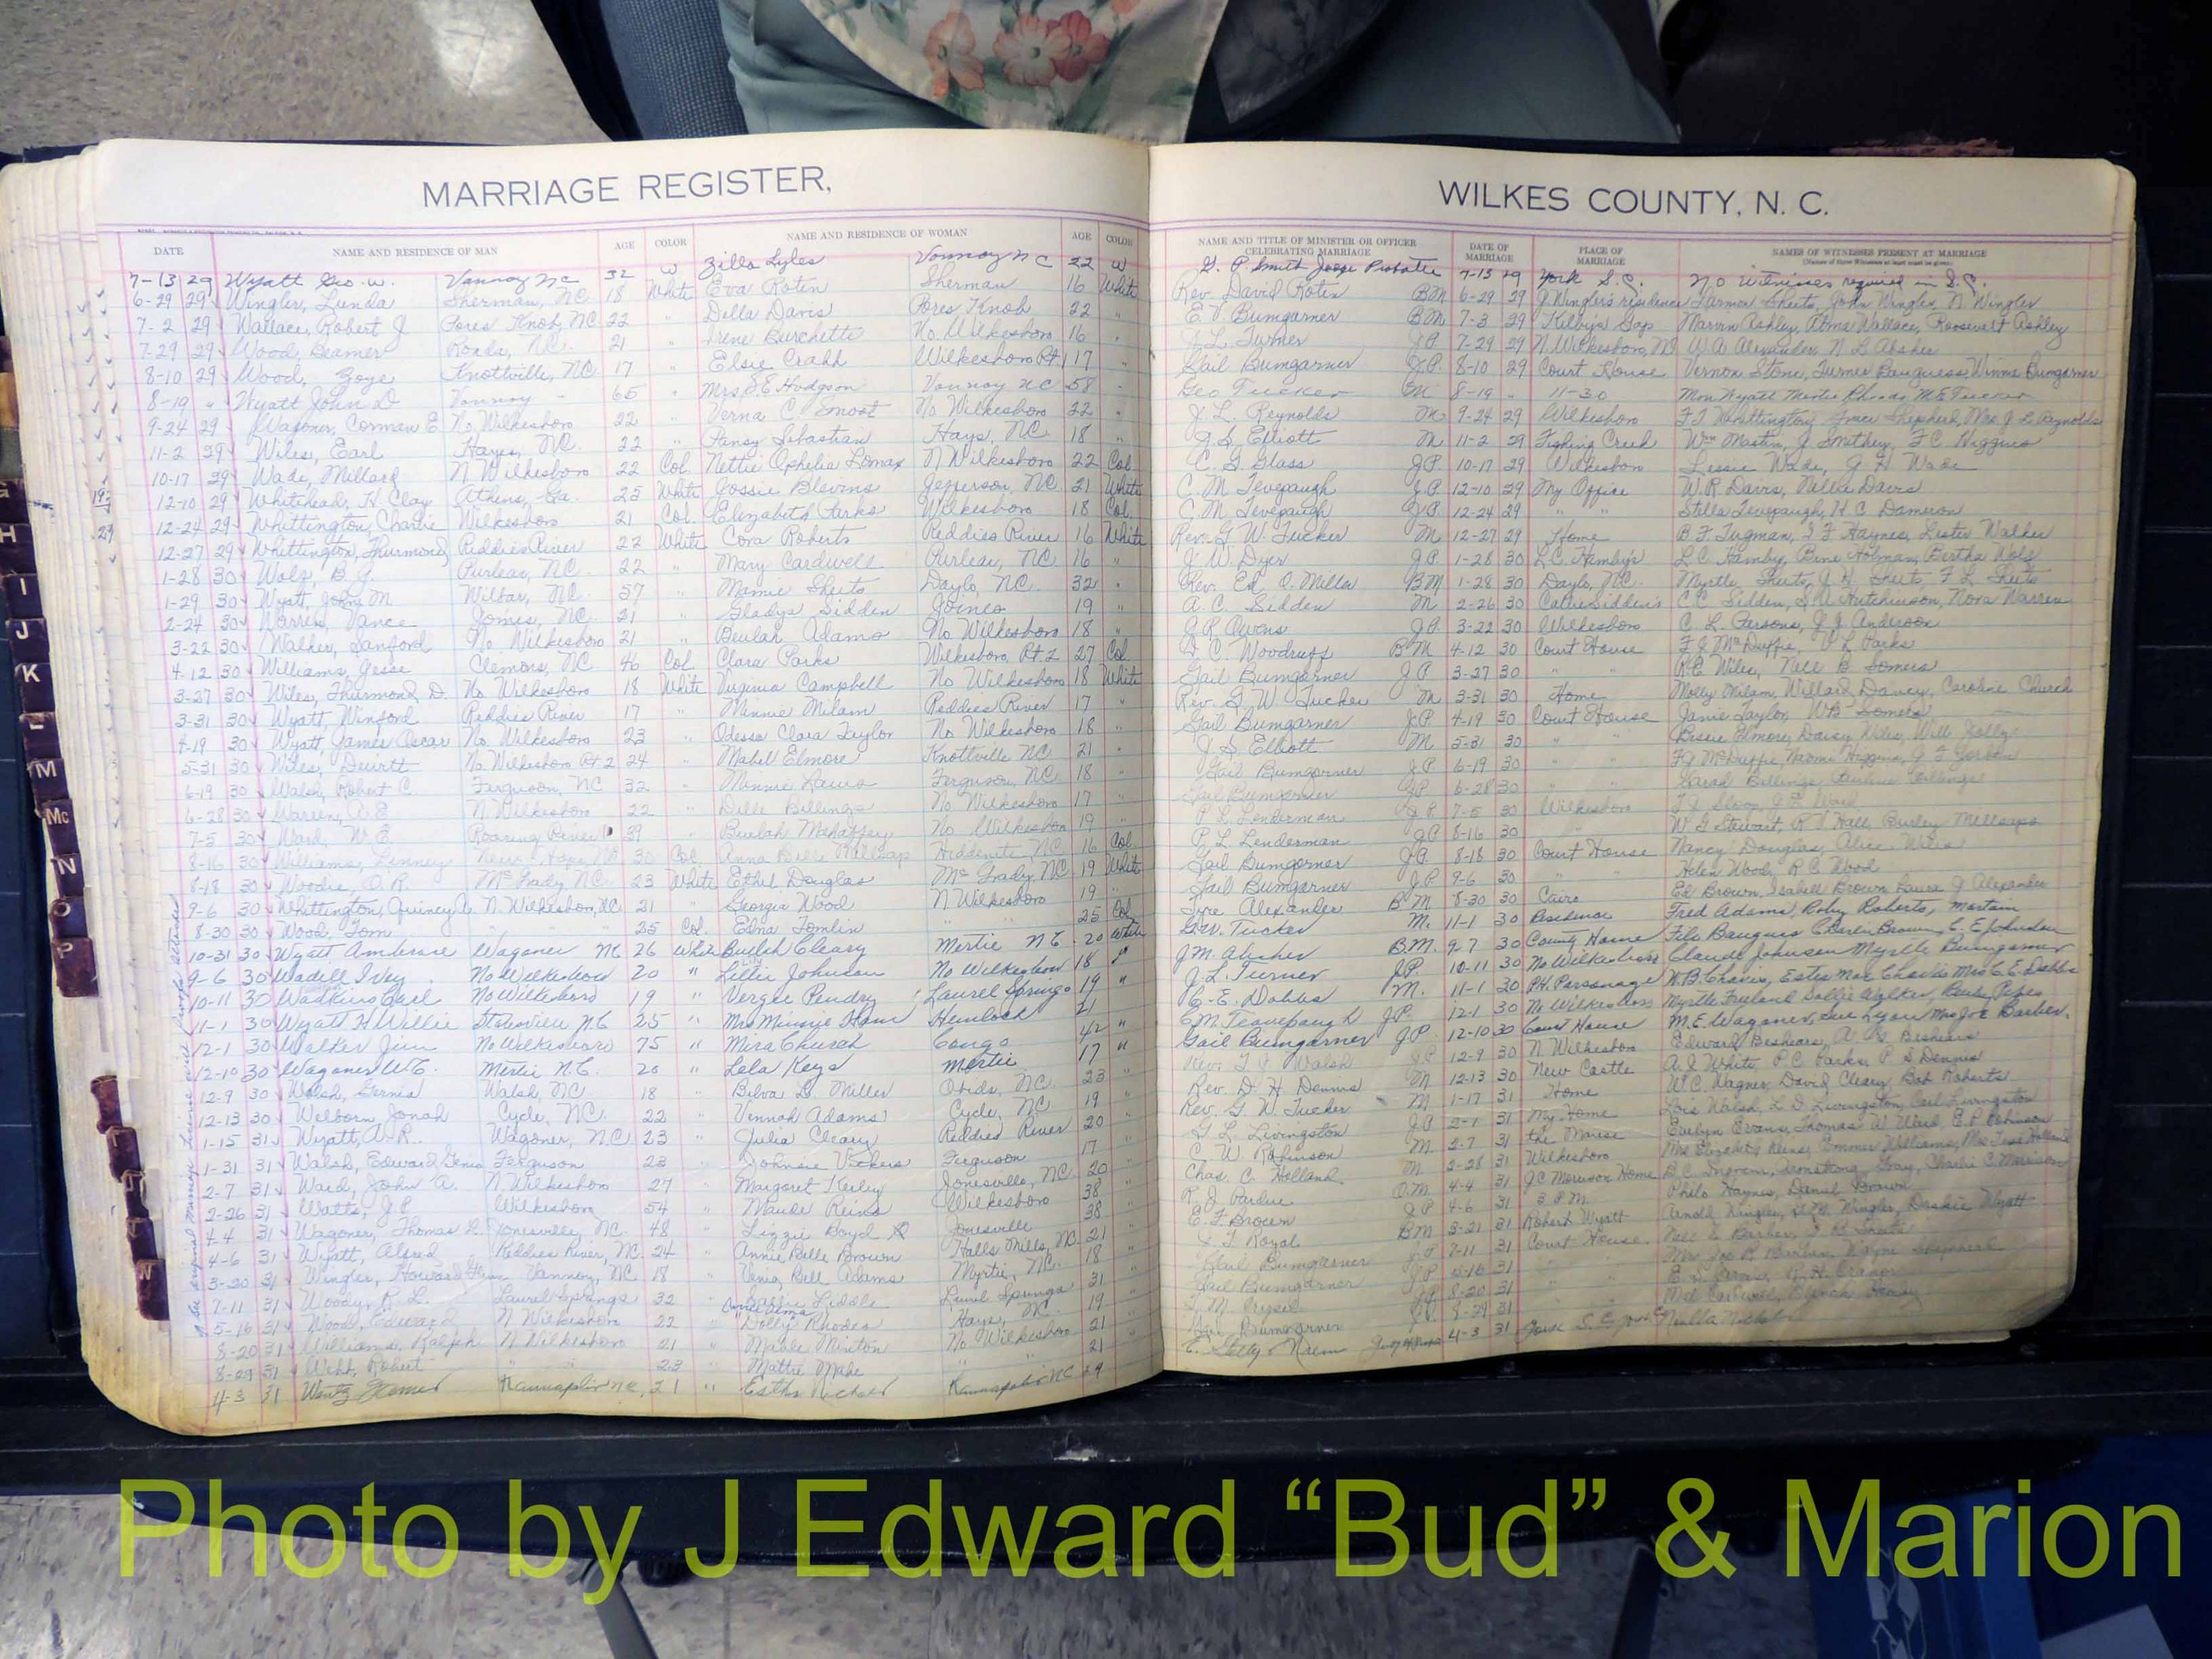 MARRIAGE REGISTER,
WILKES COUNTY, N. C.
DATE NAME AND RESIDENCE OF MAN AGE COLOR NAME AND RESIDENCE OF WOMAN AGE COLOR NAME AND TITLE OF MINISTER OR OFFICER CELEBRATING MARRIAGE DATE OF MARRIAGE PLACE OF MARRIAGE NAMES OF WITNESSES PRESENT AT MARRIAGE
7-13 29 Wyatt Geo. W. Vannoy NC 32 W Zilla Lyles Vannoy NC 22 W G. P. Smith Judge Probate 7-13 29 York S.C. No Witnesses required in S.C.
6-29 29 Wingler, Lunda Sherman, NC 18 White Eva Roten Sherman 16 White Rev. David Roten BM 6-29 29 J Wingler's residence Farmon Sheets, John Wingler, N Wingler
7-2 29 Wallace, Robert J Pores Knob, NC 22 " Della Davis Pores Knob 22 " E. V. Bumgarner BM 7-3 29 Kilby's Gap Marvin Ashley, Alma Wallace, Roosevelt Ashley
7-29 29 Wood, Beamer Roads, NC. 21 " Irene Burchette No. Wilkesboro 16 " J. L. Turner J.P. 7-29 29 N. Wilkesboro, NC W. A. Alexander, N L Absher
8-10 29 Wood, Zoye Knottville, NC 17 " Elsie Crabb Wilkesboro Rt. 1 17 " Gail Bumgarner J.P. 8-10 29 Court House Vernon Stone, Turner Bauguess, Winnie Bumgarner
8-19 " Wyatt John D Vannoy 65 " Mrs S E Hodgson Vannoy NC 58 " Geo Tucker M 8-19 " 11-30 Mon Wyatt Mertie Rhodes, M E Tucker
9-24 29 Wagoner, Corman E No. Wilkesboro 22 " Verna C. Smoot No. Wilkesboro 22 " J. L. Reynolds M 9-24 29 Wilkesboro F J Whittington, Grace Shepherd, Mrs. J. L. Reynolds
11-2 29 Wiles, Earl Hays, NC. 22 " Pansy Sebastian Hays, NC 18 " J. S. Elliott M 11-2 29 Fishing Creek Wm Mastin, J Smithey, F C Higgins
10-17 29 Wade, Millard N Wilkesboro 22 Col. Nettie Ophelia Lomax N Wilkesboro 22 Col. C. G. Glass J.P. 10-17 29 Wilkesboro Lessie Wade, G H Wade
12-10 29 Whitehead, H. Clay Athens, Ga. 25 White Gossie Blevins Jefferson, NC. 21 White C. M. Tevepaugh J.P. 12-10 29 My Office W. R. Davis, Nellie Davis
12-24 29 Whittington, Charlie Wilkesboro 21 Col. Elizabeth Parks Wilkesboro 18 Col. C. M. Tevepaugh J.P. 12-24 29 " " Stella Tevepaugh, H. C. Dameron
12-27 29 Whittington, Thurmond Reddies River 22 White Cora Roberts Reddies River 16 White Rev. G. W. Tucker M 12-27 29 Home B F Tugman, I F Haynes, Lester Walker
1-28 30 Wolf, B. G. Purlear, NC. 22 " Mary Cardwell Purlear, NC 16 " J. W. Dyer J.P. 1-28 30 L.C. Hamby's L C Hamby, Bine Holman, Bertha Wolf
1-29 30 Wyatt, John M Wilbar, NC. 57 " Mamie Sheets Daylo, NC. 32 " Rev. Ed. O. Miller BM 1-28 30 Daylo, NC. Myrtle Sheets, J H Sheets, F L Sheets
2-24 30 Warren, Vance Jones, NC. 21 " Gladys Sidden Joines 19 " A. C. Sidden M 2-26 30 C.C. Sidden,
3-22 30 Walker, Sanford No Wilkesboro 21 " Beulah Adams No Wilkesboro 18 " J. R. Owens J.P. 3-22 30 Wilkesboro C. L. Parsons, J. J. Anderson
4-12 30 Williams, Jesse Clemons, NC 46 Col Clara Parks Wilkesboro, Rt. 2 27 Col. C. Woodruff BM 4-12 30 Court House F J McDuffie, V L Parks
3-27 30 Wiles, Thurmond D. No Wilkesboro 18 White Virginia Campbell No Wilkesboro 18 White Gail Bumgarner J P 3-27 30 " " R. E. Wiles, Nell B Somers
3-31 30 Wyatt, Winford Reddies River 17 " Minnie Milam Reddies River 17 " Rev. G. W. Tucker M 3-31 30 Home Molly Milam, Willard Dancy, Caroline Church
4-19 30 Wyatt, James Oscar No. Wilkesboro 23 " Odessa Clara Taylor No Wilkesboro 18 " Gail Bumgarner J.P. 4-19 30 Court House Janie Taylor, WB Somers
5-31 30 Wiles, Dewitt No Wilkesboro Rt 2 24 " Mabel Elmore Knottville NC 21 " J. S. Elliott M 5-31 30 " " Bessie Elmore, Daisy Wiles, Will Jolly
6-19 30 Walsh, Robert C Ferguson, NC 32 " Minnie Laws Ferguson, NC 18 " Gail Bumgarner J.P. 6-19 30 " " F J McDuffie, Naomi Higgins
6-28 30 Warren, A. E N. Wilkesboro 22 " Delle Billings No Wilkesboro 17 " Gail Bumgarner J.P. 6-28 30 " " Sarah Billings, Pauline Billings
7-5 30 Ward, W. E Roaring River 39 " Beulah Mahaffey No Wilkesboro 19 " P. L. Lenderman J P 7-5 30 Wilkesboro
8-16 30 Williams, New Hope, NC 30 Col. Anna Belle Millsap Hiddenite, NC 16 Col. P. L. Lenderman J.P. 8-16 30 W G Stewart, R J Hall, Burley Millsaps
8-18 30 Woodie, O. R. McGrady, NC. 23 White Ethel Douglas McGrady, NC 19 White Gail Bumgarner J.P. 8-18 30 Court House Nancy Douglas, Alice Wiles
9-6 30 Whittington, Quincy A. N. Wilkesboro, NC 21 " Georgia Wood N. Wilkesboro 19 " Gail Bumgarner J.P. 9-6 30 " " Helen Wood, R C Wood
8-30 30 Wood, Tom " " 25 Col. Edna Tomlin " " 25 Col Tyre Alexander B M. 8-30 30 Cairo Ed Brown, Isabell Brown, Laura J Alexander
10-31 30 Wyatt Ambrose Wagoner NC 26 White Beulah Cleary Mertie NC 20 White G.W. Tucker M. 11-1 30 Residence Fred Adams, Roby Roberts,
9-6 30 Wadell Ivey No Wilkesboro 20 " Lillie Johnson No Wilkesboro 18 " J.M. Absher BM. 9-7 30 County Home File Bauguess Charlie Brown, C. E Johnson
10-11 30 Watkins Gail No Wilkesboro 19 " Vergie Pendry Laurel Springs 19 " J. L. Turner J.P. 10-11 30 No Wilkesboro Claude Johnson Myrtle Bumgarner
11-1 30 Wyatt H Willie Statesville NC 25 " Mrs Minnie Ham Hemlock 21 C. E. Dobbs M. 11-1 30 P.H. Parsonage W.B. Chavis, Estes Mae Chavis Mrs C. E. Dobbs
12-1 30 Walker Jim No Wilkesboro 75 " Mira Church Congo 42 " C M. Teavepaugh J.P. 12-1 30 No Wilkesboro Myrtle Freeland Sallie Walker,
12-10 30 Wagoner W.C. Mertie N.C. 20 " Lela Keys Mertie 17 " Gail Bumgarner J.P. 12-10 30 Court House M. E. Wagoner, Sue Lyon Mrs Joe Barber.
12-9 30 Walsh, Walsh, NC 18 " Bilva L. Miller Obids, NC. 23 " Rev. Walsh 12-9 30 N. Wilkesboro Edward Beshears, Beshears
12-13 30 Welborn Jonah Cycle, NC. 22 " Vennah Adams Cycle, NC 19 " Rev. D. H. Dennis M 12-13 30 New Castle A. J. White, P C Parks, P S Dennis
1-15 31 Wyatt, A. R. Wagoner, N.C. 23 " Julia Cleary Reddies River 20 Rev. G. W. Tucker M 1-17 31 Home W. C. Wagner, David Cleary, Bob Roberts
1-31 31 Walsh, Edward Ferguson 23 " Johnsie Vickers Ferguson 17 G. L. Livingston J.P. 2-1 31 My Home Lois Walsh, L. D. Livingston, Carl Livingston
2-7 31 Ward, John A. N. Wilkesboro 27 " Margaret Jonesville, NC. 20 C. W. Robinson M 2-7 31 The Manse Evelyn Evans, Thomas W. Ward, E. P. Robinson
2-26 31 Watts, J. P Wilkesboro 54 " Maude Reins Wilkesboro 38 Chas. C. Holland M 2-28 31 Wilkesboro Mrs. Elizabeth Reins, Emma Williams,
4-4 31 Wagoner, Thomas Jonesville, NC. 48 " Lizzie Boyd Jonesville 38 R. J. Pardue O.M. 4-4 31 J C Morrison Home
4-6 31 Wyatt, Alfred Reddies River, NC. 24 " Annie Belle Brown Halls Mills, NC 21 E. F. Brown J P 4-6 31 3 P.M. Philo Haynes, Daniel Brown
3-20 31 Wingler, Howard Vannoy, NC 18 " Venia Bell Adams Myrtie, NC. 18 " Royal BM 3-21 31 Robert Wyatt Arnold Wingler, Wingler, Wyatt
7-11 31 Woody, R. L. Laurel Springs 32 " Liddle Laurel Springs 31 Gail Bumgarner J.P. 7-11 31 Court House Barber,
5-16 31 Wood, Edward N Wilkesboro 22 " Dollie Rhodes Hays, NC. 19 " Gail Bumgarner J.P. 5-16 31 " " Mrs. Joe R Barber, Wayne
8-20 31 Williams, Ralph N. Wilkesboro 21 " Minton No Wilkesboro 21 " 8-20 31
8-29 31 Webb, Robert " " 23 " Mattie " " 21 Gail Bumgarner 8-29 31
4-3 31 Wentz Kannapolis NC. 21 " Esther Kannapolis NC 29 4-3 31 York S.C.
19
29
G
H
I
J
K
L
M
Mc
N
O
P
T
W
Photo by J Edward “Bud” & Marion